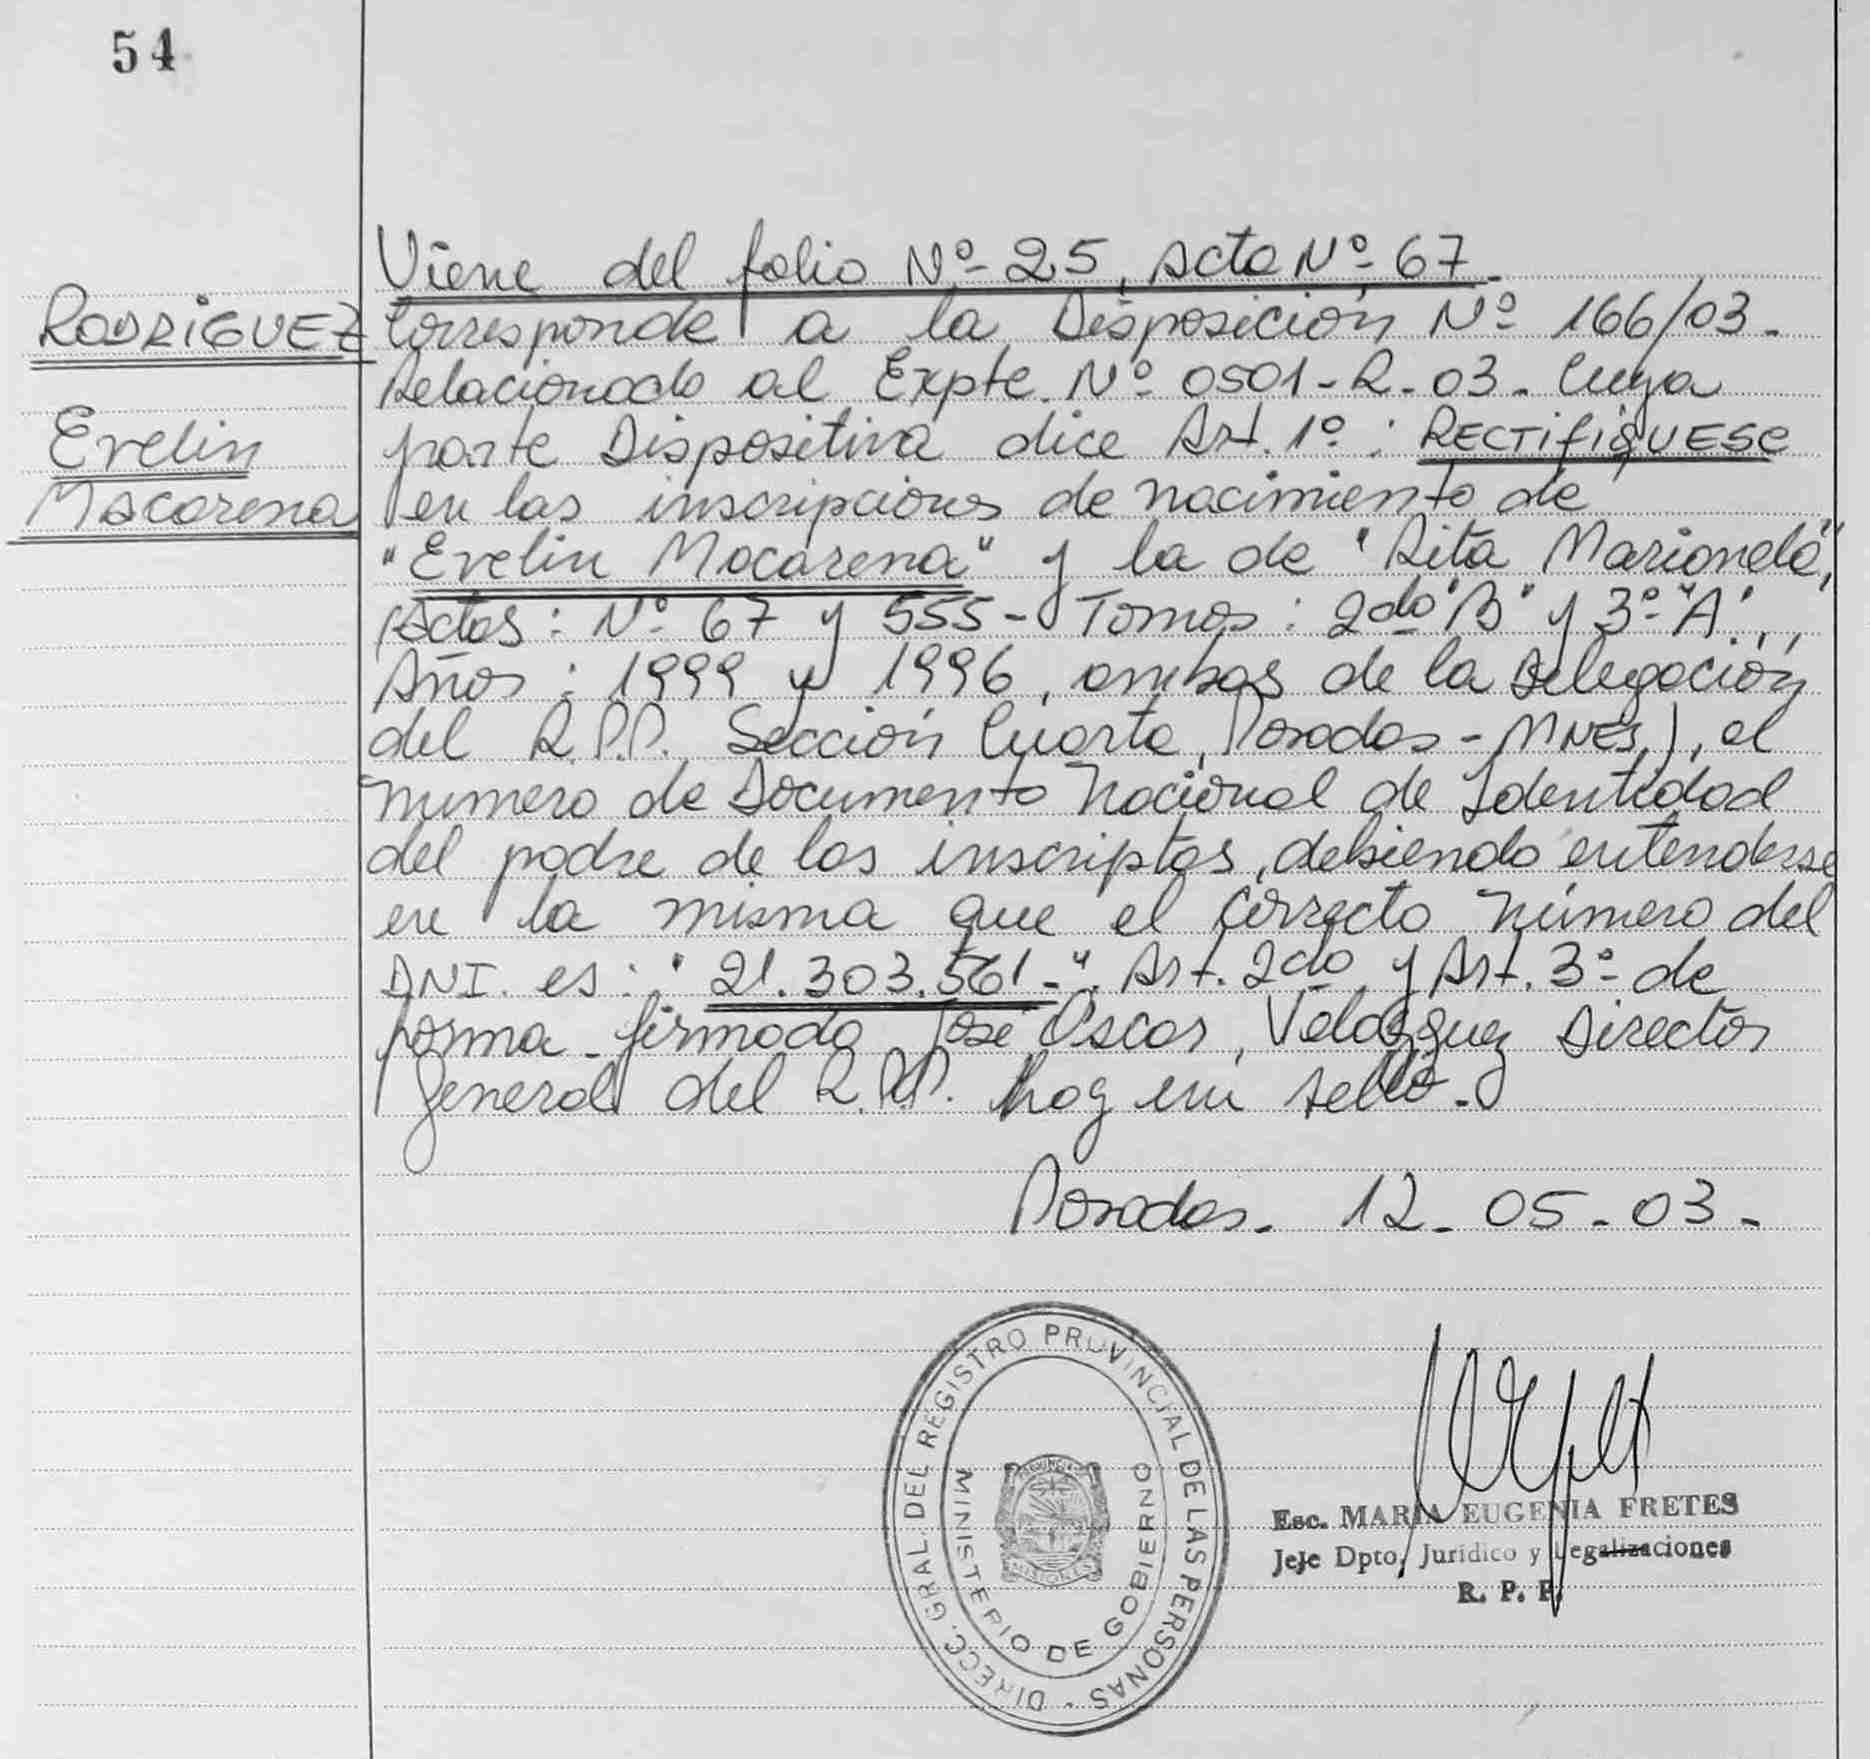 54
RODRIGUEZ
Evelin
Macarena
Viene del folio Nº 25, Acta Nº 67.
Corresponde a la Disposición Nº 166/03.
Relacionado al Expte. Nº 0501-R-03. Cuya
parte Dispositiva dice Art. 1º: RECTIFIQUESE
en las inscripciones de nacimiento de
"Evelin Macarena" y la de "Rita Marianela",
Actas: Nº 67 y 555- Tomos: 2do "B" y 3º "A".,
Años: 1999 y 1996, ambas de la Delegación
del R.P.P. Sección Cuarta, Posadas - MNES.), el
numero de Documento Nacional de Identidad
del padre de las inscriptas, debiendo entenderse
en la misma que el correcto número del
DNI. es: "21.303.561-". Art. 2do y Art. 3º de
forma. firmado José Oscar, Velazquez Director
General del R.P.P. hay un sello.
Posadas. 12-05-03-
DIRECC. GRAL. DEL REGISTRO PROVINCIAL DE LAS PERSONAS -
MINISTERIO DE GOBIERNO
Esc. MARIA EUGENIA FRETES
Jefe Dpto, Jurídico y Legalizaciones
R. P. P.